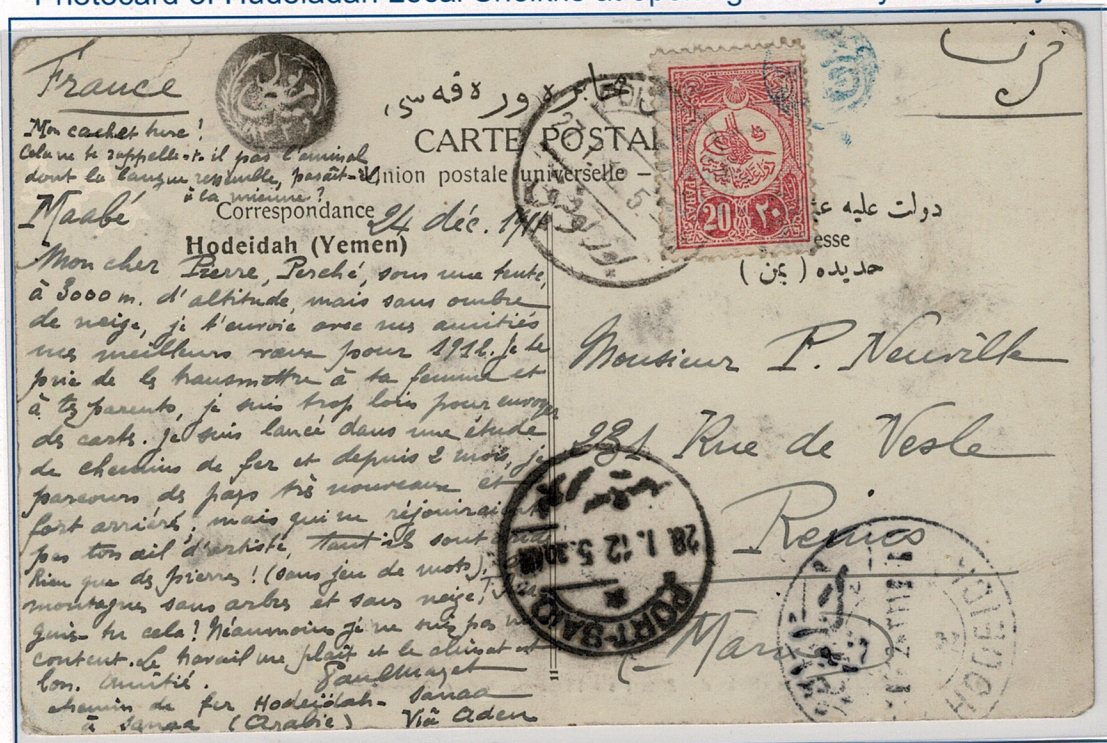 France
Mon cachet turc!
Cela ne te rappelle-t-il pas l'animal
dont la langue ressemble, paraît-il
à la mienne?
فرنسا
CARTE POSTAL
Union postale universelle
Correspondance
Hodeidah (Yemen)
دولت عليه
esse
حديده ( يمن )
20 PARAS ٢٠
Maabé 24 déc. 1911
Mon cher Pierre, Perché, sous une tente,
à 3000 m. d'altitude, mais sans ombre
de neige, je t'envoie avec mes amitiés
mes meilleurs vœux pour 1912. Je te
prie de les transmettre à ta femme et
à tes parents, je suis trop loin pour envoyer
des cartes. Je suis lancé dans une étude
de chemins de fer et depuis 2 mois, je
parcours des pays très nouveaux et
fort arriérés, mais qui ne réjouiraient
pas ton œil d'artiste, tant ils sont
Rien que des pierres! (sans jeu de mots),
montagnes sans arbres et sans neige,
cela! Néanmoins je ne suis pas
content. Le travail me plaît et le climat est
bon. Amitié.
Paul Mazet
chemin de fer Hodeidah-Sanaa
à Sanaa (Arabie) Via Aden
Monsieur P. Neuville
231 Rue de Vesle
Reims
(Marne)
PORT-SAID
28.1.12 5.30
HODEIDA